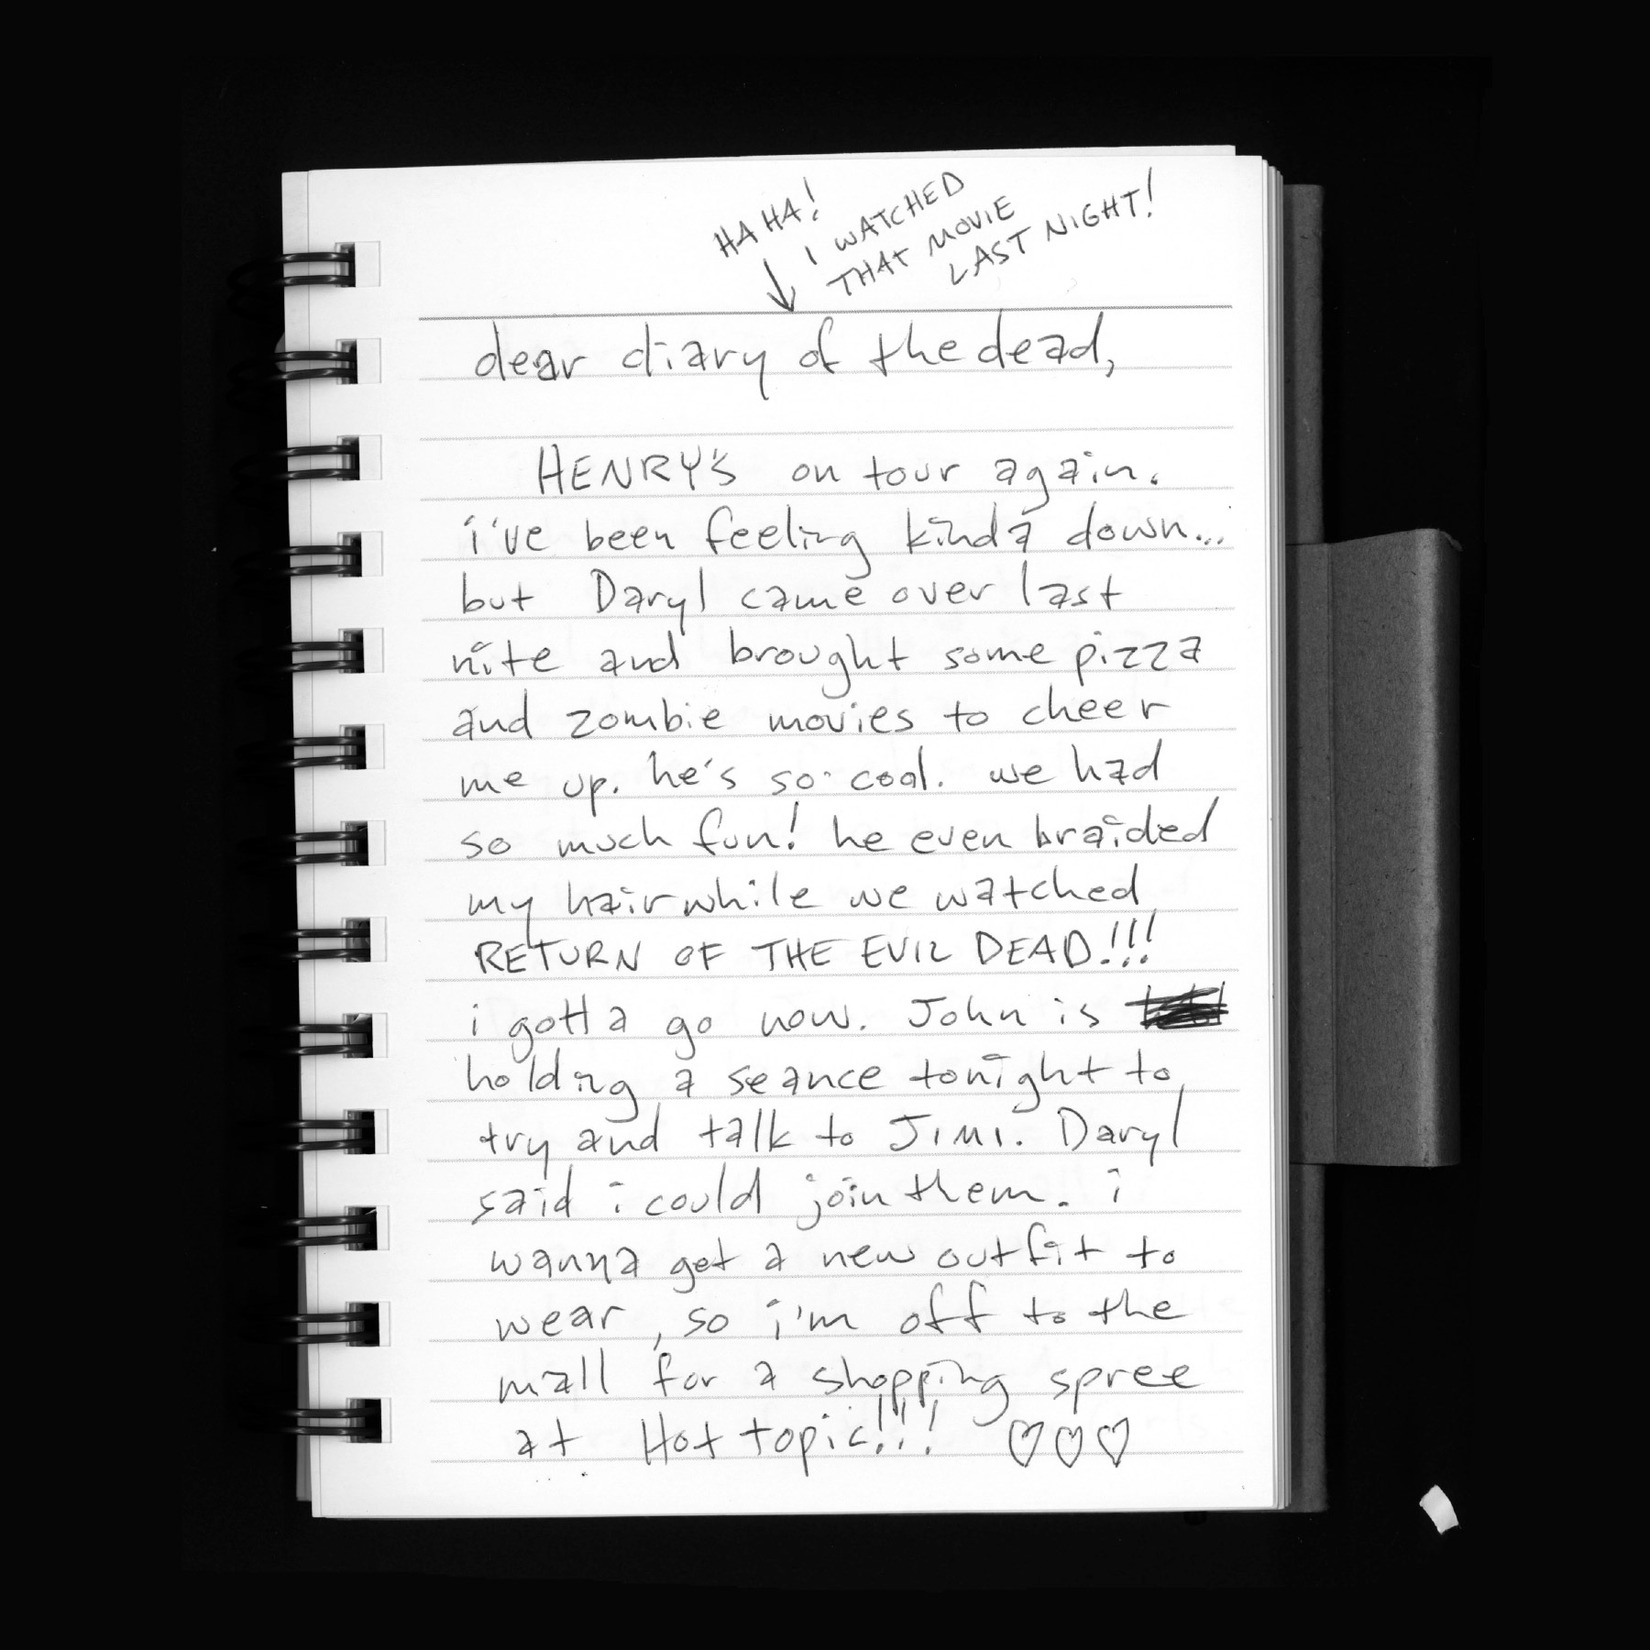 HA HA!
I WATCHED
THAT MOVIE
LAST NIGHT!
dear diary of the dead,
HENRY'S on tour again.
i've been feeling kinda down...
but Daryl came over last
nite and brought some pizza
and zombie movies to cheer
me up. he's so cool. we had
so much fun! he even braided
my hair while we watched
RETURN OF THE EVIL DEAD!!!
i gotta go now. John is
holding a seance tonight to
try and talk to JIMI. Daryl
said i could join them. i
wanna get a new outfit to
wear, so i'm off to the
mall for a shopping spree
at Hot topic!!! ♡♡♡